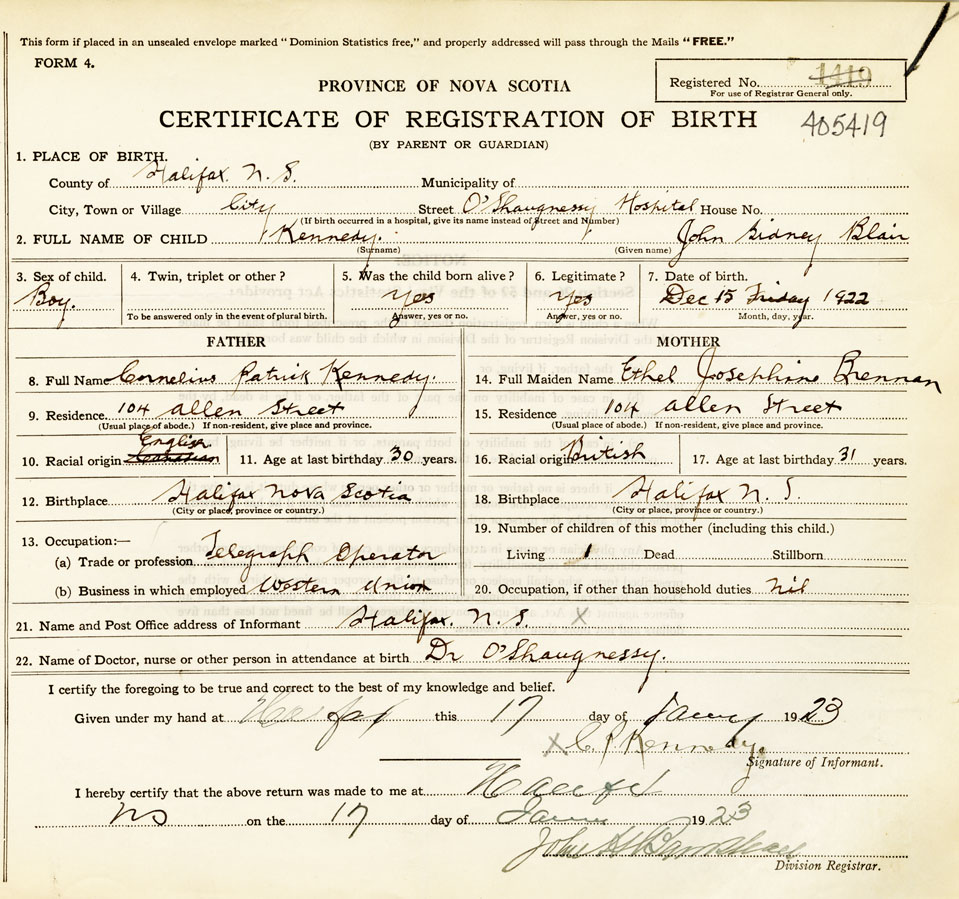 This form if placed in an unsealed envelope marked "Dominion Statistics free," and properly addressed will pass through the Mails "FREE."
FORM 4.
PROVINCE OF NOVA SCOTIA
Registered No. 1419
For use of Registrar General only.
CERTIFICATE OF REGISTRATION OF BIRTH
405419
(BY PARENT OR GUARDIAN)
1. PLACE OF BIRTH.
County of Halifax N. S. Municipality of
City, Town or Village City Street O'Shaugnessy Hospital House No.
(If birth occurred in a hospital, give its name instead of Street and Number)
2. FULL NAME OF CHILD Kennedy. John Sidney Blair
(Surname) (Given name)
3. Sex of child. 4. Twin, triplet or other? 5. Was the child born alive? 6. Legitimate? 7. Date of birth.
Boy. Yes Yes Dec 15 Friday 1922
To be answered only in the event of plural birth. Answer, yes or no. Answer, yes or no. Month, day, year.
FATHER MOTHER
8. Full Name Cornelius Patrick Kennedy. 14. Full Maiden Name Ethel Josephine Brennan
9. Residence 104 Allen Street 15. Residence 104 Allen Street
(Usual place of abode.) If non-resident, give place and province. (Usual place of abode.) If non-resident, give place and province.
English
10. Racial origin Canadian 11. Age at last birthday 30 years. 16. Racial origin British 17. Age at last birthday 31 years.
12. Birthplace Halifax Nova Scotia 18. Birthplace Halifax N. S.
(City or place, province or country.) (City or place, province or country.)
13. Occupation:— 19. Number of children of this mother (including this child.)
(a) Trade or profession Telegraph Operator Living 1 Dead Stillborn
(b) Business in which employed Western Union 20. Occupation, if other than household duties nil
21. Name and Post Office address of Informant Halifax. N. S. X
22. Name of Doctor, nurse or other person in attendance at birth Dr O'Shaugnessy.
I certify the foregoing to be true and correct to the best of my knowledge and belief.
Given under my hand at Halifax this 17 day of Jany 1923
X C P Kennedy.
Signature of Informant.
I hereby certify that the above return was made to me at Halifax
NS on the 17 day of 1923
John
Division Registrar.